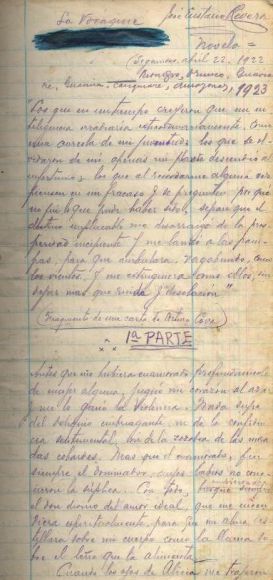 La Vorágine José Eustasio Rivera
Novela =
Sogamoso, abril 22, 1922
Orinoco, Guaviare, Guainía, Casiquiare, Amazonas, 1923
"Los que en un tiempo creyeron que mi inteligencia
irradiaría extraordinariamente, como
una aureola de mi juventud; los que se olvidaron
de mí apenas mi planta descendió al
infortunio; los que al recordarme alguna vez
piensen en mi fracaso y se pregunten por qué
no fui lo que pude haber sido, sepan que el
destino implacable me desarraigó de la prosperidad
incipiente y me lanzó a las pampas,
para que ambulara, vagabundo, como
los vientos, y me extinguiera como ellos, sin
dejar más que ruido y desolación"
(Fragmento de una carta de Arturo Cova)
1ª PARTE
Antes que me hubiera enamorado profundamente
de mujer alguna, jugué mi corazón al azar
y me lo ganó la Violencia. Nada supe
del deliquio embriagante, ni de la confidencia
sentimental, ni de la zozobra de las miradas
cobardes. Más que el enamorado, fui
siempre el dominador cuyos labios no conocieron
la súplica. Con todo, ambicionaba
el don divino del amor ideal, que me encendiera
espiritualmente, para que mi alma destellara
sobre mi cuerpo como la llama sobre
el leño que la alimenta.
Cuando los ojos de Alicia me trajeron